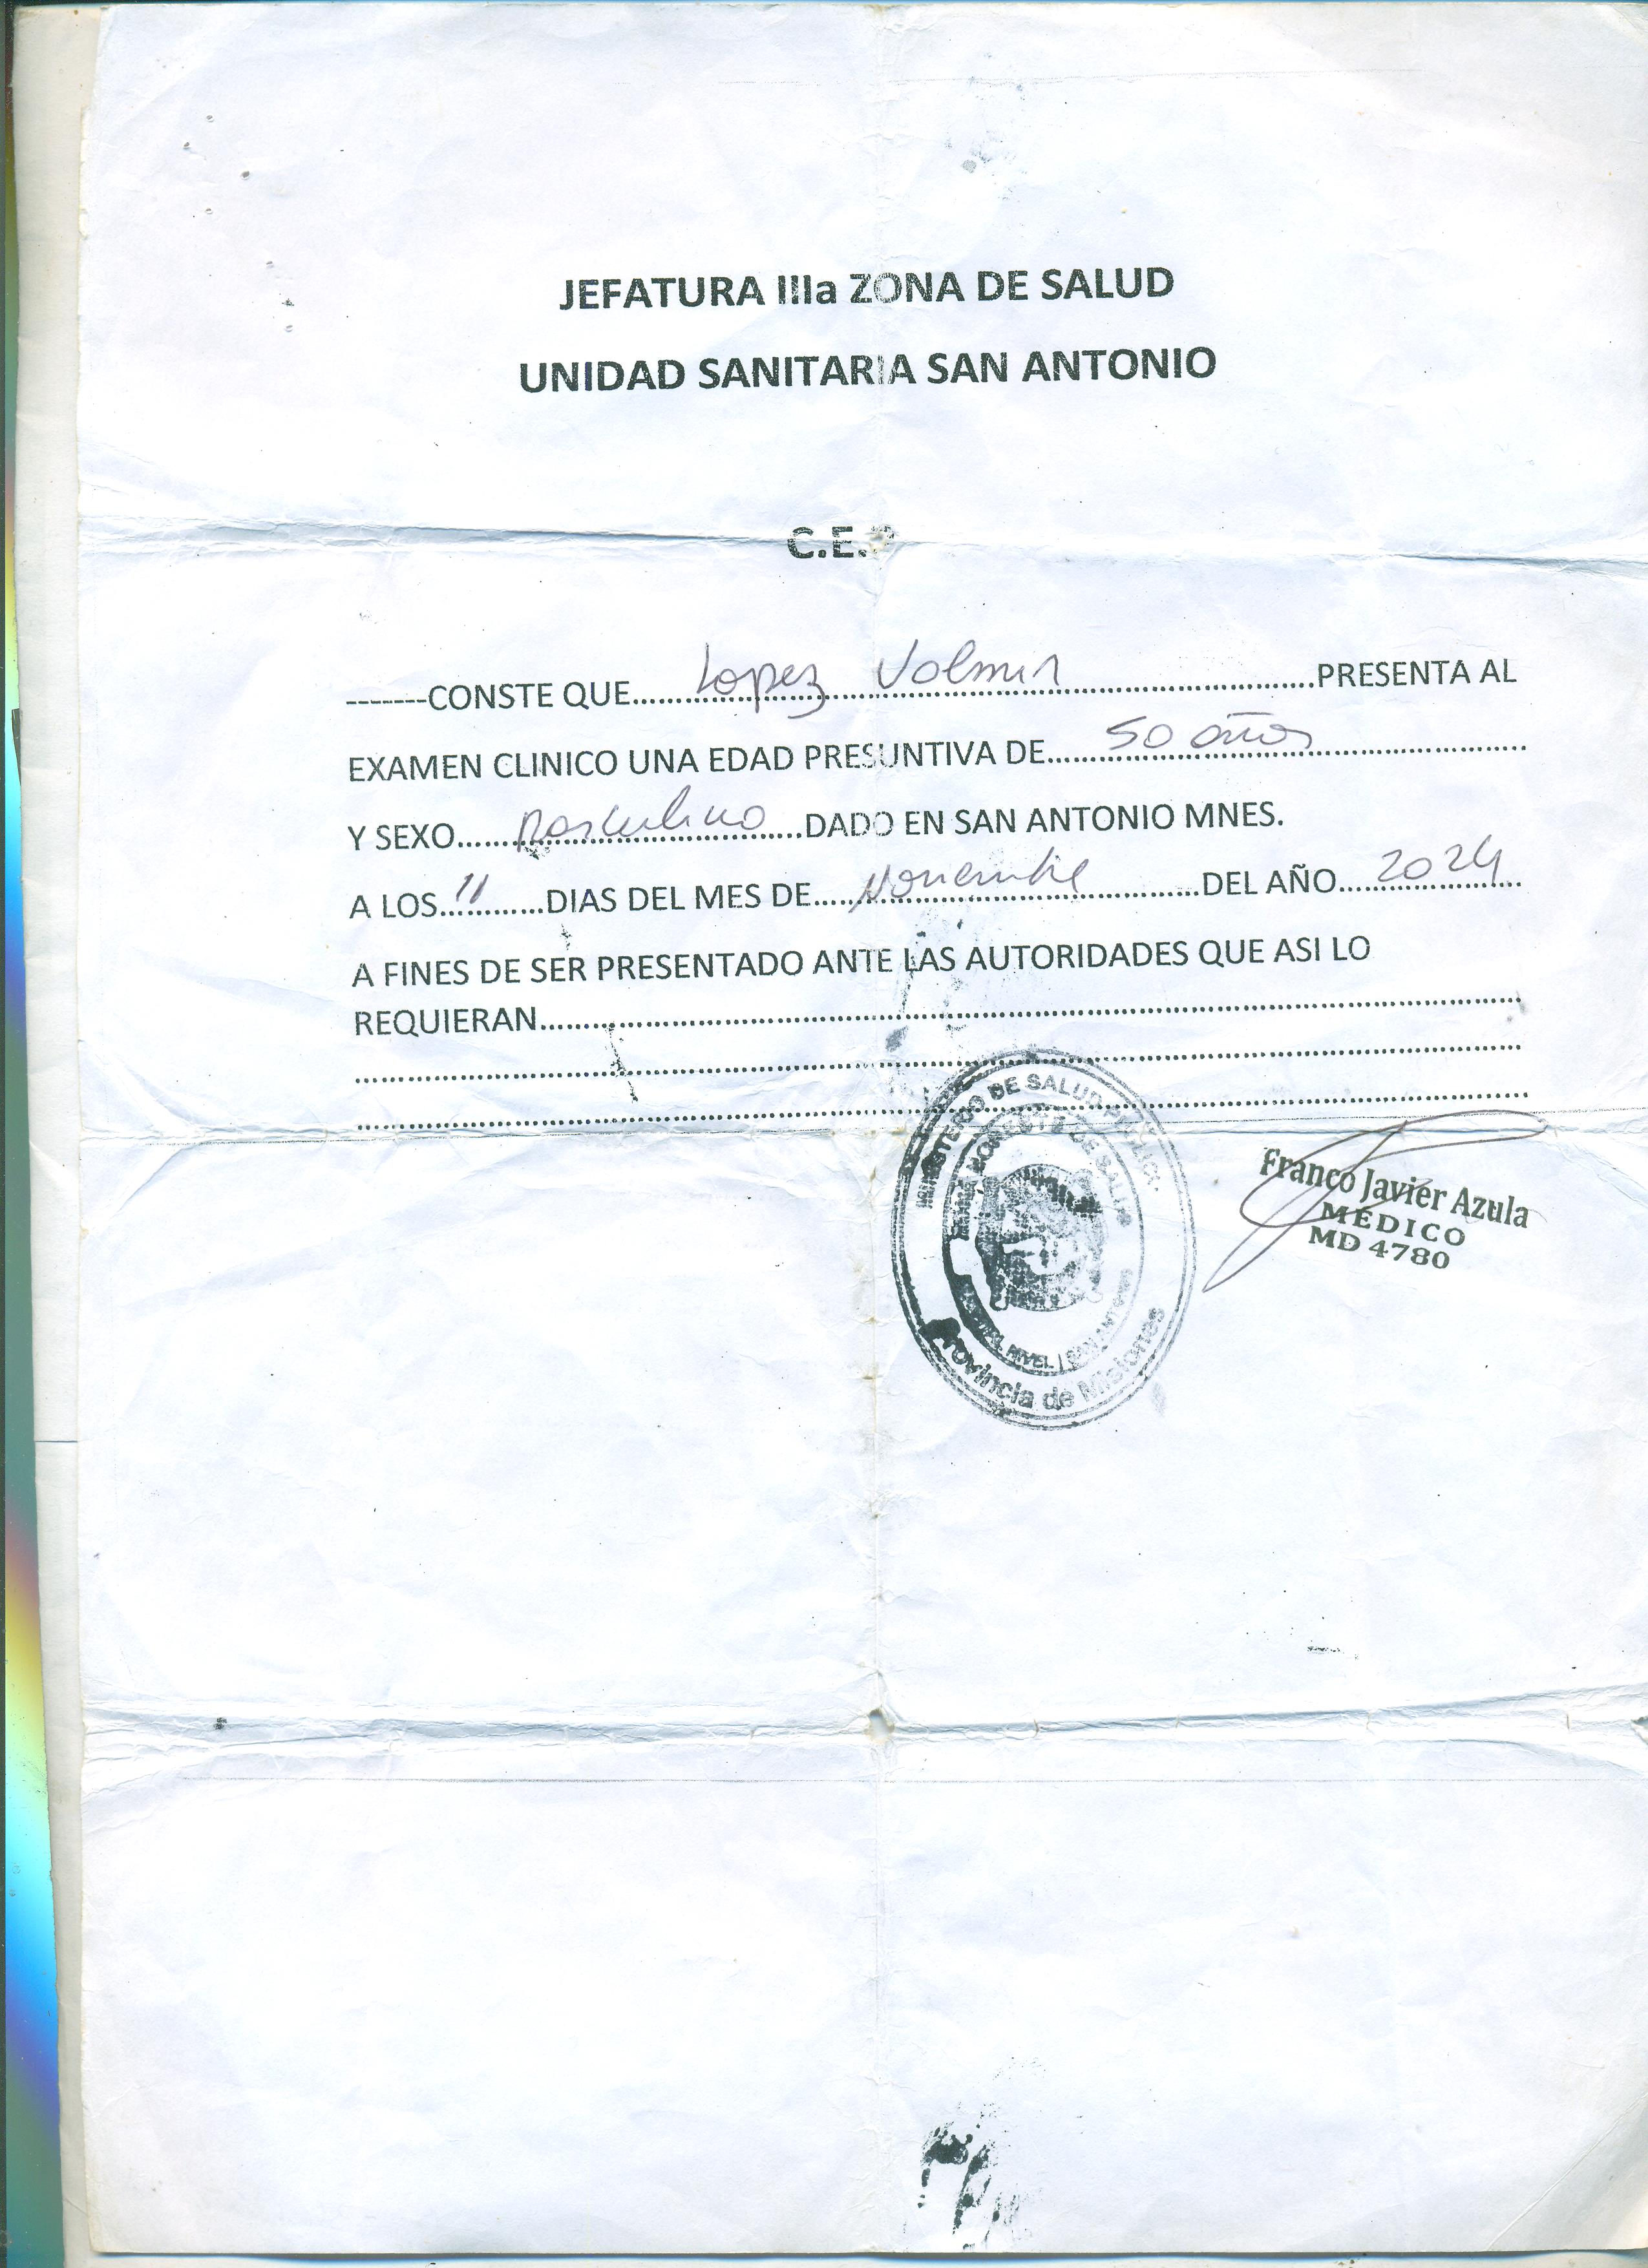 JEFATURA IIIa ZONA DE SALUD
UNIDAD SANITARIA SAN ANTONIO
C.E.
-------CONSTE QUE.....Lopez Volmir.....PRESENTA AL
EXAMEN CLINICO UNA EDAD PRESUNTIVA DE.....50 años.....
Y SEXO.....Masculino.....DADO EN SAN ANTONIO MNES.
A LOS...11.....DIAS DEL MES DE.....Noviembre.....DEL AÑO.....2024.....
A FINES DE SER PRESENTADO ANTE LAS AUTORIDADES QUE ASI LO
REQUIERAN.....
MINISTERIO DE SALUD PUBLICA
DE SALUD
NIVEL I SAN ANTONIO
Provincia de Misiones
Franco Javier Azula
MEDICO
MD 4780